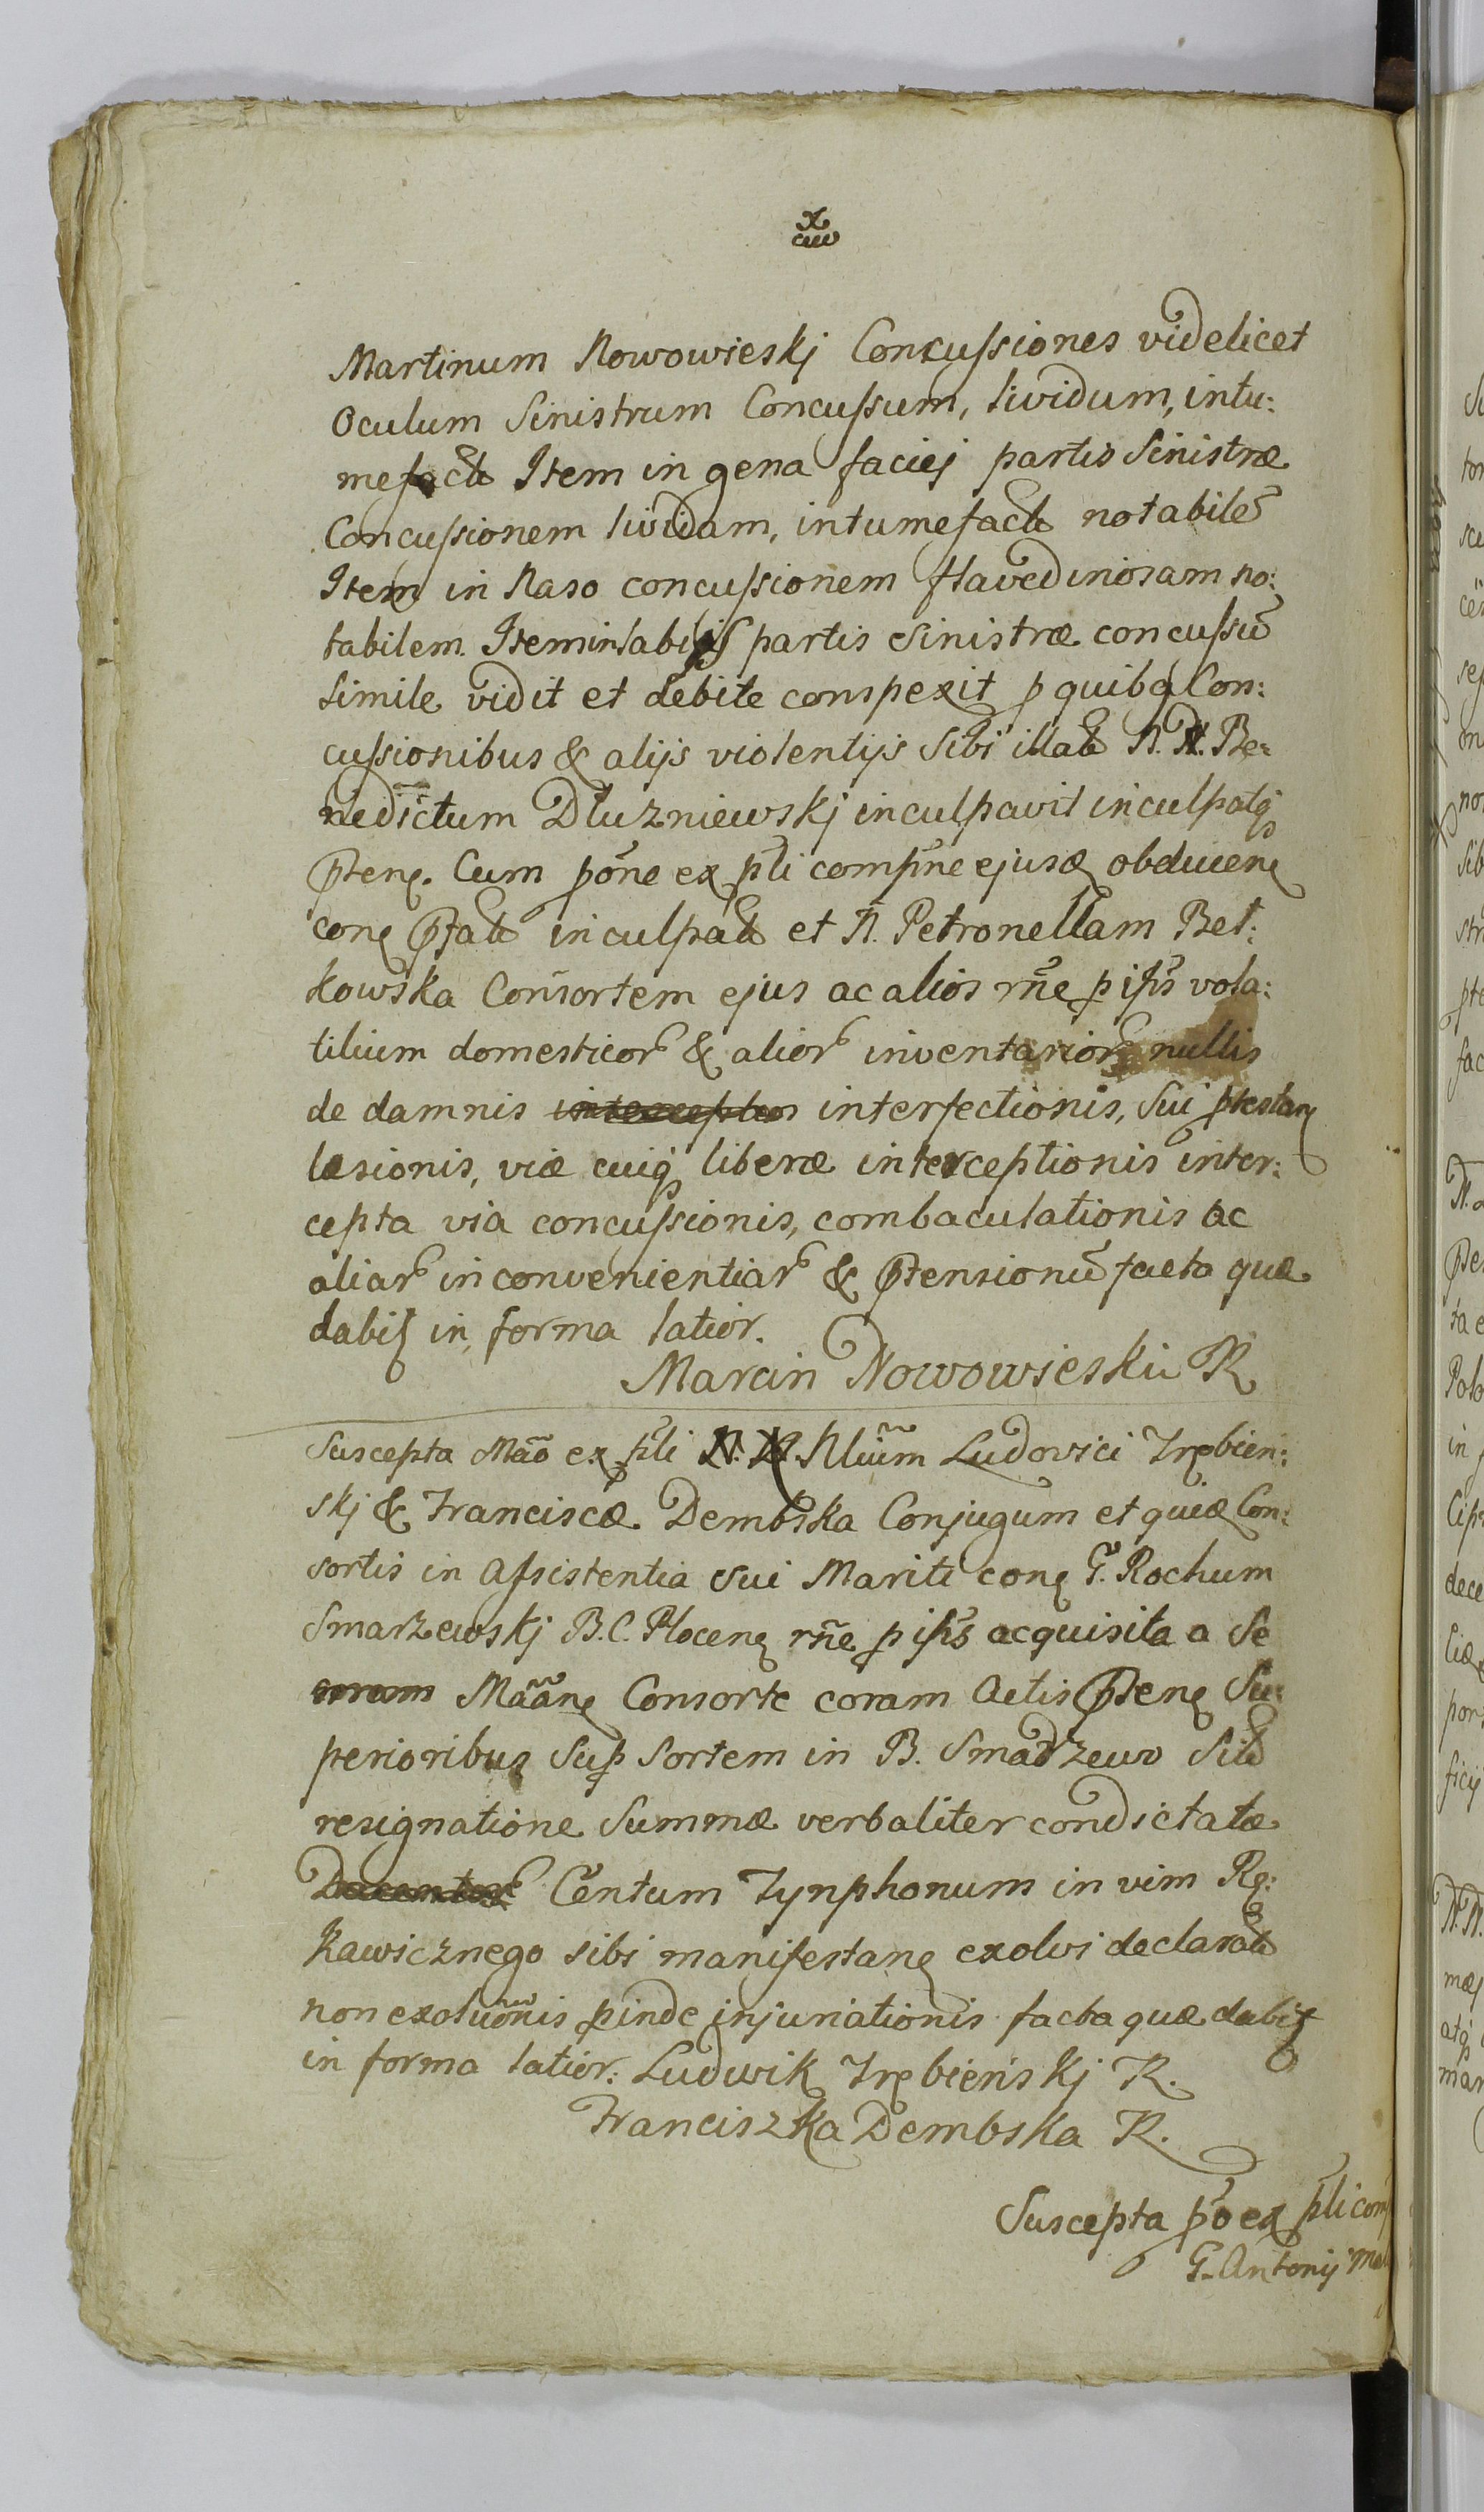 Martinum Nowowieskj Concussiones videlicet
Oculum Sinistrum Concussum, lividum, intu:
mefact Item in gena faciej partis Sinistræ
Concussionem lividam, intumefact notabilē
Item in Naso concussionem flavedinosam no:
tabilem. Item in labijs partis Sinistræ concussū
Simile vidit et debite conspexit p quibq Con:
cussionibus & alijs violentijs Sibi illat N. N. Be:
nedictum Dluzniewskj inculpavit inculpatq
Pteng. Cum põne ex pli compne ejusq obduceng
cong Pfat inculpat et N. Petronellam Bet:
kowska Consortem ejus ac alios rñe p ipīs vola:
tilium domesticor & alior inventarior nullis
de damnis interfectionis, Sui ptestang
læsionis, viæ cuiq liberæ interceptionis inter:
cepta via concussionis, combaculationis ac
aliar inconvenientiar & Ptensionū facta quæ
dabit in forma latior.
Marcin Nowowieski R
Suscepta Mão ex pli Nlium Ludovici Trębien:
skj & Franciscæ Dembska Conjugum et quidæ Con:
sortis in Assistentia Sui Mariti cong G. Rochum
Smarzewskj B. C. Ploceng rñe p ipīs acquisita a Se
Mããng Consorte coram Actis Pteng Su:
perioribus Sup Sortem in B. Smardzewo Sit
resignatione Summæ verbaliter condictatæ
Centum Tynphonum in vim Rę:
kawicznego sibi manifestang exolvi declarat
non exoluõnis pinde injuriationis facta quæ dabit
in forma latior: Ludwik Trębieńskj R.
Franciszka Dembska R.
Suscepta põ ex pli com
G. Antonij